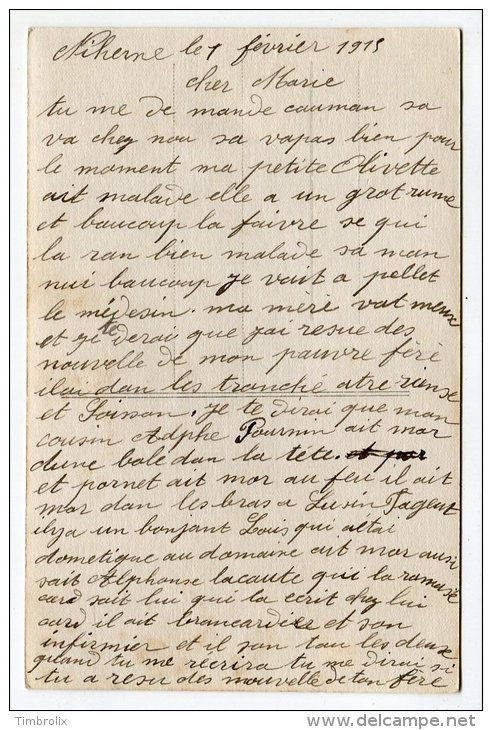 Niherne le 1 février 1915
cher Marie
tu me de mande cauman sa
va chez nou sa vapas bien pour
le moment ma petite Olivette
ait malade elle a un grot rume
et baucoup la faivre se qui
la ran bien malade sa man
nui baucoup je vait a pellet
le médesin. ma meré vat meux
et je te derai que jai resue des
nouvelle de mon pauvre féré
ilai dan les tranché atre rien se
et Soisson. Je te dirai que man
cousin Adphe Pournin ait mor
dune bale dan la téte.
et pornet ait mor au feu il ait
mor dan les bras a Lusin Pagent
ilya un bonjant Louis qui aitai
dometique au domaine ait mor ausi
sait Alphonse lacaute qui la ramase
card sait lui qui la ecrit chez lui
card il ait brancardiee et son
infirmier et il son tou les deux
quand tu me recrira tu me dirai si
tu a resu des nouvelle de ton féré
Timbrolix
delcampe.net